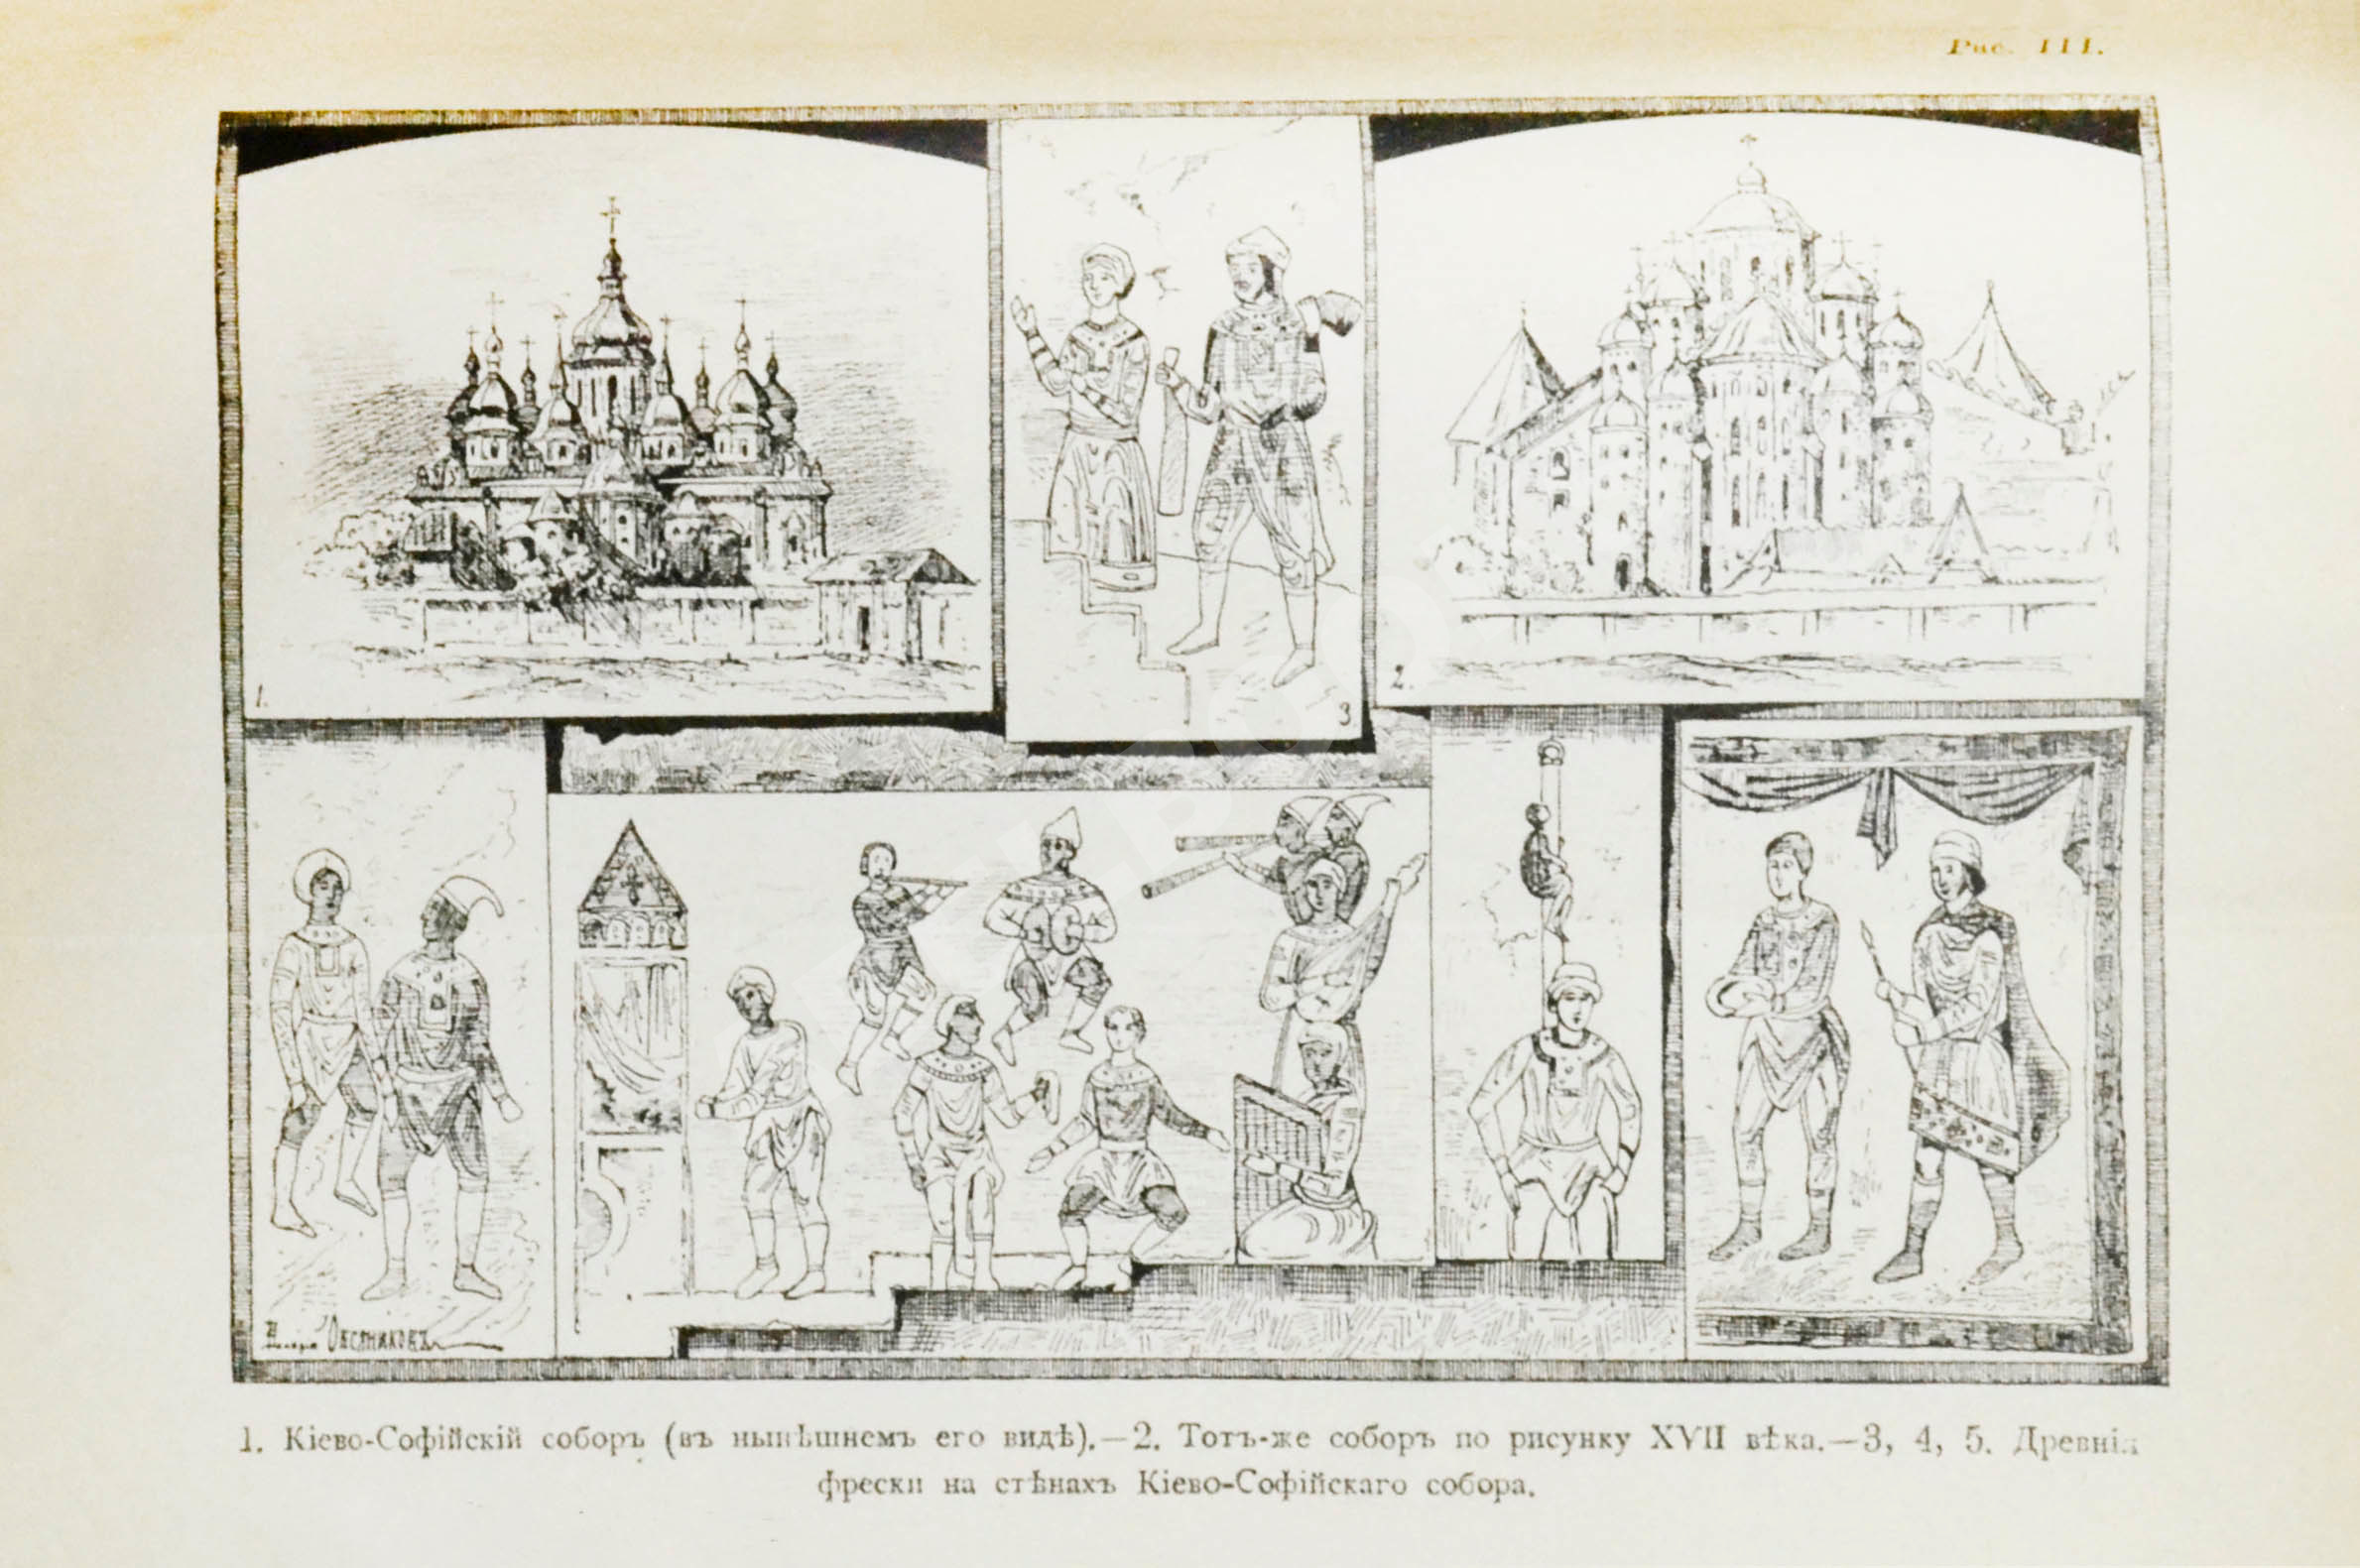 Рис. III.
1.
3
2.
Овсянниковъ
1. Кіево-Софійскій соборъ (въ нынѣшнемъ его видѣ).—2. Тотъ-же соборъ по рисунку XVII вѣка.—3, 4, 5. Древнія
фрески на стѣнахъ Кіево-Софійскаго собора.